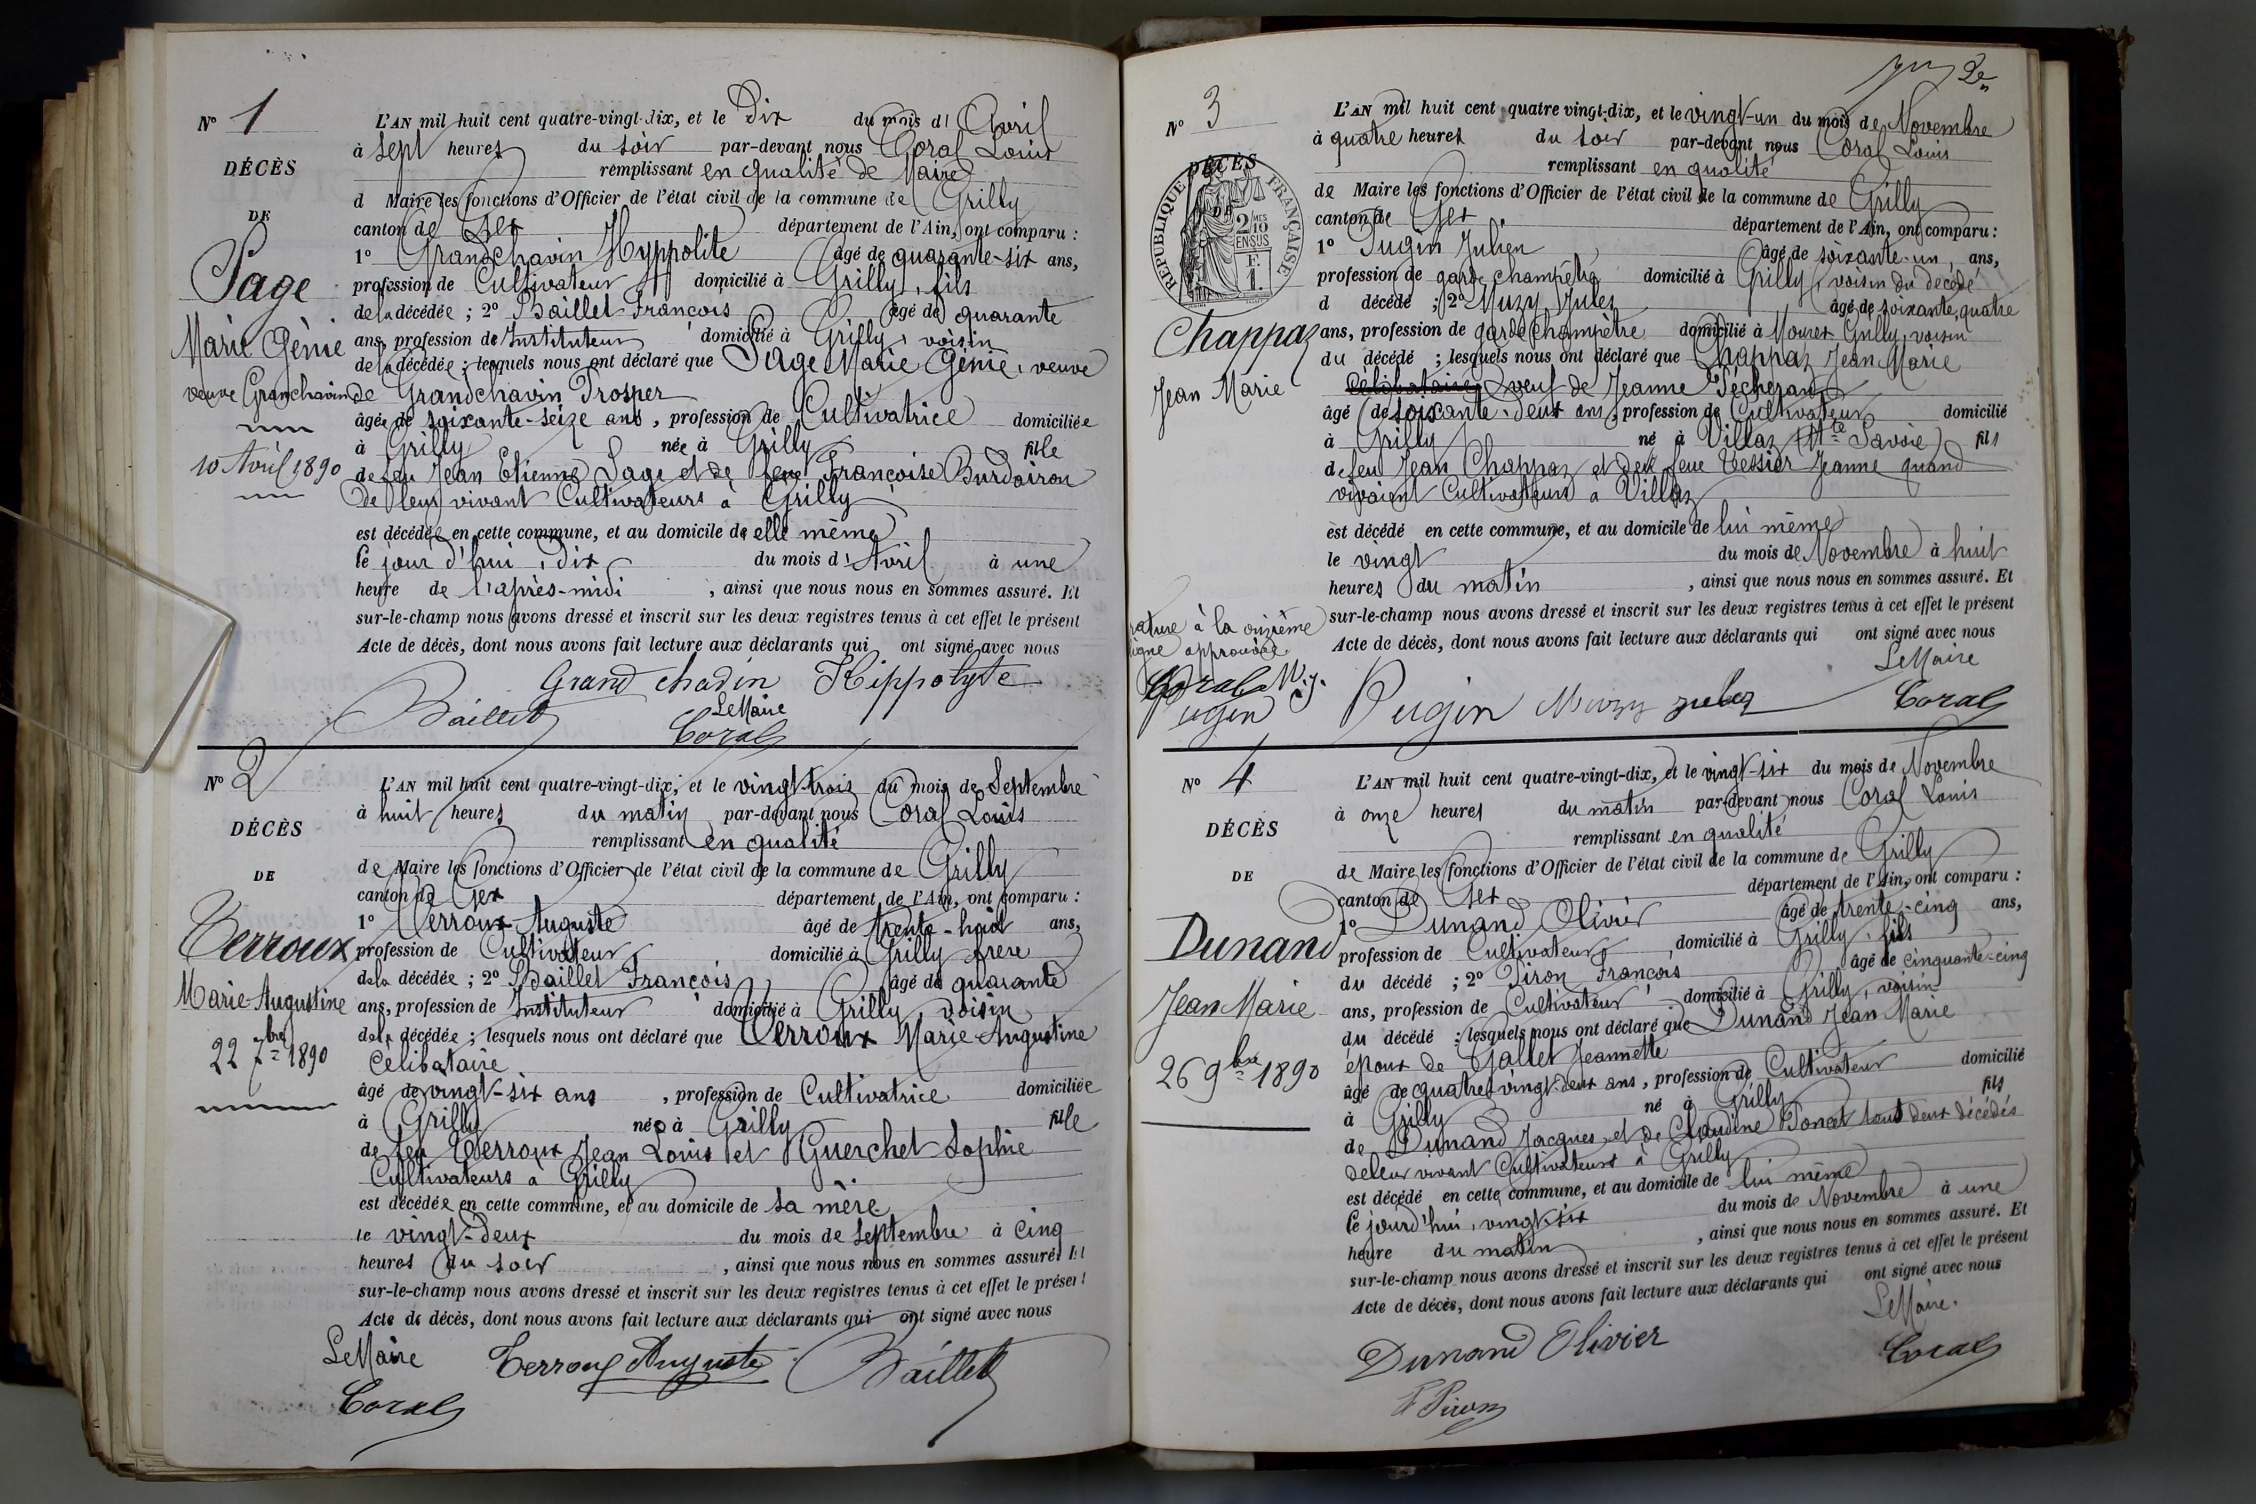 N° 1
DÉCÈS
DE
Page
Marie Génie
veuve Granchavin
10 Avril 1890
L'AN mil huit cent quatre-vingt-dix, et le Dix du mois d' Avril
à sept heures du soir par-devant nous Coral Louis
remplissant en qualité de Maire
d Maire les fonctions d'Officier de l'état civil de la commune de Grilly
canton de Gex département de l'Ain, ont comparu :
1° Grandchavin Hyppolite âgé de quarante-six ans,
profession de Cultivateur domicilié à Grilly, fils
de la décédée ; 2° Baillet François âgé de quarante
ans, profession de Instituteur domicilié à Grilly, voisin
de la décédée ; lesquels nous ont déclaré que Page Marie Génie, veuve
de Grandchavin Prosper
âgée de soixante-seize ans, profession de Cultivatrice domiciliée
à Grilly née à Grilly fille
de feu Jean Etienne Page et de feue Françoise Burdairon
de leur vivant Cultivateurs à Grilly
est décédée en cette commune, et au domicile de elle même
le jour d'hui, dix du mois d' Avril à une
heure de l'après-midi, ainsi que nous nous en sommes assuré. Et
sur-le-champ nous avons dressé et inscrit sur les deux registres tenus à cet effet le présent
Acte de décès, dont nous avons fait lecture aux déclarants qui ont signé avec nous
Grand chavin Hippolyte
Baillet
Le Maire
Coral
N° 2
DÉCÈS
DE
Verroux
Marie-Augustine
22 7bre 1890
L'AN mil huit cent quatre-vingt-dix, et le vingt-trois du mois de Septembre
à huit heures du matin par-devant nous Coral Louis
remplissant en qualité
de Maire les fonctions d'Officier de l'état civil de la commune de Grilly
canton de Gex département de l'Ain, ont comparu :
1° Verroux Auguste âgé de trente-huit ans,
profession de Cultivateur domicilié à Grilly frere
de la décédée ; 2° Baillet François âgé de quarante
ans, profession de Instituteur domicilié à Grilly, voisin
de la décédée ; lesquels nous ont déclaré que Verroux Marie Augustine
Célibataire
âgé de vingt-six ans, profession de Cultivatrice domiciliée
à Grilly née à Grilly fille
de feu Verroux Jean Louis et Guerchet Sophie
Cultivateurs à Grilly
est décédée en cette commune, et au domicile de sa mère
le vingt-deux du mois de Septembre à cinq
heures du soir, ainsi que nous nous en sommes assuré. Et
sur-le-champ nous avons dressé et inscrit sur les deux registres tenus à cet effet le présent
Acte de décès, dont nous avons fait lecture aux déclarants qui ont signé avec nous
Le Maire Verroux Auguste Baillet
Coral
2e
N° 3
DÉCÈS
DE
RÉPUBLIQUE FRANÇAISE
2 MES
10
EN SUS
F.
1.
Chappaz
Jean Marie
L'AN mil huit cent quatre vingt-dix, et le vingt-un du mois de Novembre
à quatre heures du soir par-devant nous Coral Louis
remplissant en qualité
de Maire les fonctions d'Officier de l'état civil de la commune de Grilly
canton de Gex département de l'Ain, ont comparu :
1° Pugin Julien âgé de soixante-un, ans,
profession de garde champêtre domicilié à Grilly, voisin du décédé
d décédé ; 2° Muzy Jules âgé de soixante, quatre
ans, profession de garde champêtre domicilié à Mourex Grilly, voisin
du décédé ; lesquels nous ont déclaré que Chappaz Jean Marie
Célibataire veuf de Jeanne Pecheran
âgé de soixante-deux ans, profession de Cultivateur domicilié
à Grilly né à Villaz (Hte Savoie) fils
de feu Jean Chappaz et de feue Tessier Jeanne quand
vivaient Cultivateurs à Villaz
est décédé en cette commune, et au domicile de lui même
le vingt du mois de Novembre à huit
heures du matin, ainsi que nous nous en sommes assuré. Et
sur-le-champ nous avons dressé et inscrit sur les deux registres tenus à cet effet le présent
Acte de décès, dont nous avons fait lecture aux déclarants qui ont signé avec nous
rature à la onzième
ligne approuvée.
Coral M. J.
Pugin
Le Maire
Pugin Muzy Jules Coral
N° 4
DÉCÈS
DE
Dunand
Jean Marie
26 9bre 1890
L'AN mil huit cent quatre-vingt-dix, et le vingt-six du mois de Novembre
à onze heures du matin par-devant nous Coral Louis
remplissant en qualité
de Maire les fonctions d'Officier de l'état civil de la commune de Grilly
canton de Gex département de l'Ain, ont comparu :
1° Dunand Olivier âgé de trente-cinq ans,
profession de Cultivateur domicilié à Grilly, fils
du décédé ; 2° Piron François âgé de cinquante-cinq
ans, profession de Cultivateur domicilié à Grilly, voisin
du décédé : lesquels nous ont déclaré que Dunand Jean Marie
époux de Gallet Jeannette
âgé de quatre vingt-deux ans, profession de Cultivateur domicilié
à Grilly né à Grilly fils
de Dunand Jacques et de Claudine Poncet tous deux décédés
de leur vivant Cultivateurs à Grilly
est décédé en cette commune, et au domicile de lui même
le jourd'hui, vingt-six du mois de Novembre à une
heure du matin, ainsi que nous nous en sommes assuré. Et
sur-le-champ nous avons dressé et inscrit sur les deux registres tenus à cet effet le présent
Acte de décès, dont nous avons fait lecture aux déclarants qui ont signé avec nous
Le Maire.
Dunand Olivier Coral
F Piron